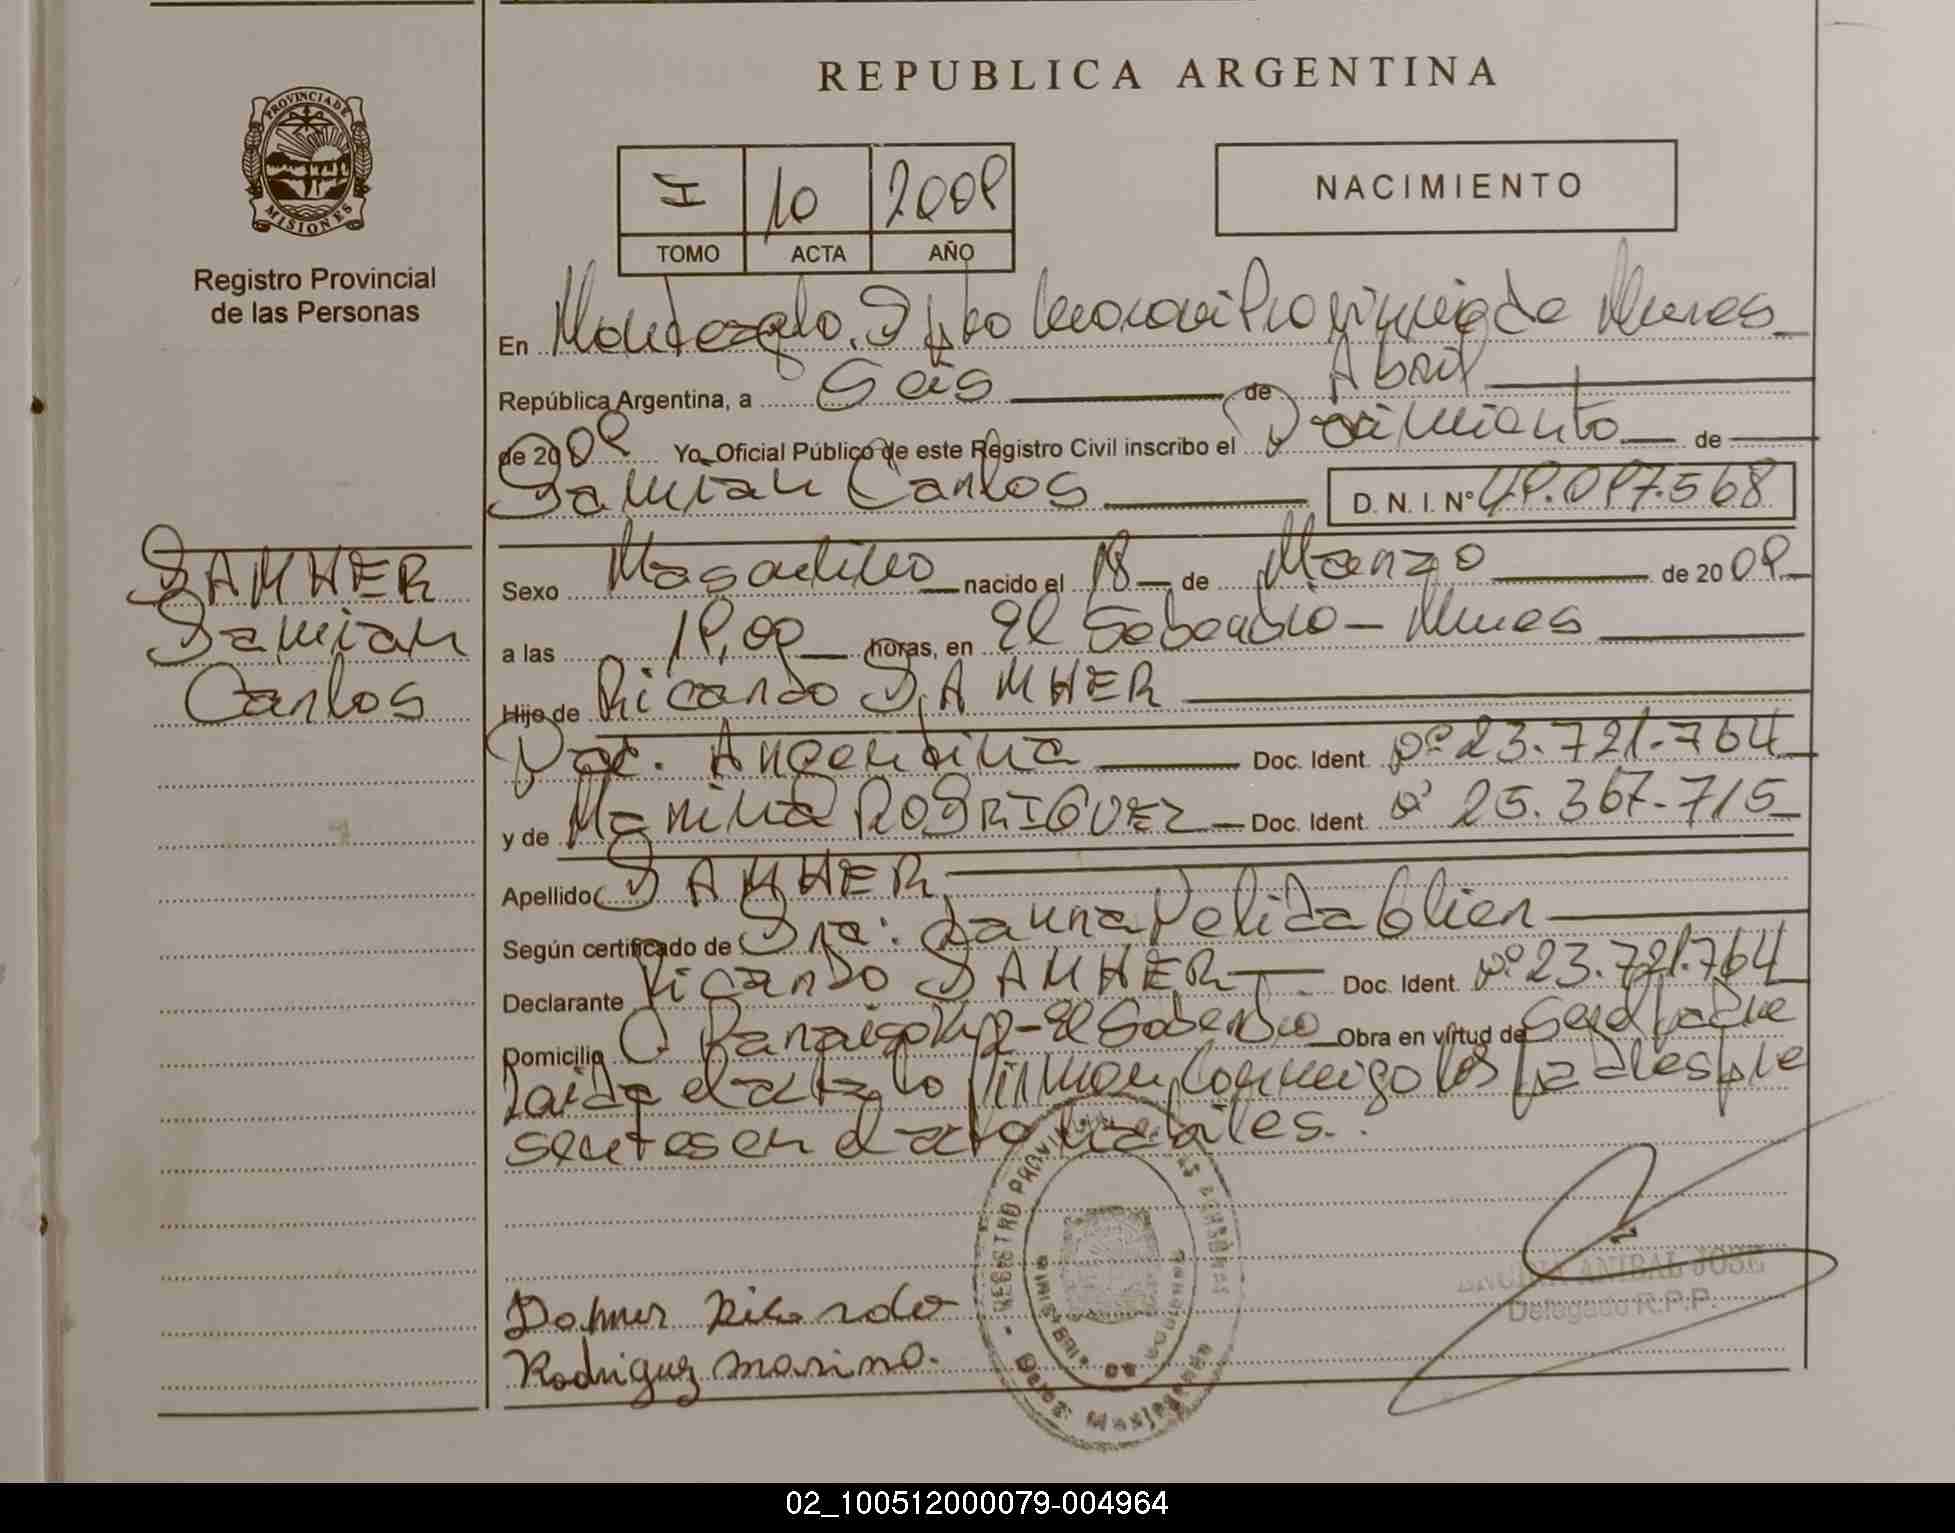 REPUBLICA ARGENTINA
PROVINCIA DE
MISIONES
Registro Provincial
de las Personas
I 10 2009
TOMO ACTA AÑO
NACIMIENTO
En Montecarlo, Dpto Provincia de Mnes
República Argentina, a Seis de Abril
de 2009 Yo, Oficial Público de este Registro Civil inscribo el Nacimiento de
Damian Carlos D. N. I. Nº 49.097.568
DAHMER
Damian
Carlos
Sexo Masculino nacido el 18 de Marzo de 2009
a las 19,00 horas, en El Soberbio - Mnes
Hijo de Ricardo DAHMER
Nac. Argentina Doc. Ident. Nº 23.721.764
y de Marina RODRIGUEZ Doc. Ident. Nº 25.367.715
Apellido DAHMER
Según certificado de Dra: Nelida
Declarante Ricardo DAHMER Doc. Ident. Nº 23.721.764
Domicilio - El Soberbio Obra en virtud de Ser el padre
Leida el acta lo firman conmigo los padres pre
sentes en el acto
REGISTRO PROVINCIAL DE LAS PERSONAS
ANIBAL JOSE
Delegado R.P.P.
Dahmer Ricardo
Rodriguez Marina.
02_100512000079-004964